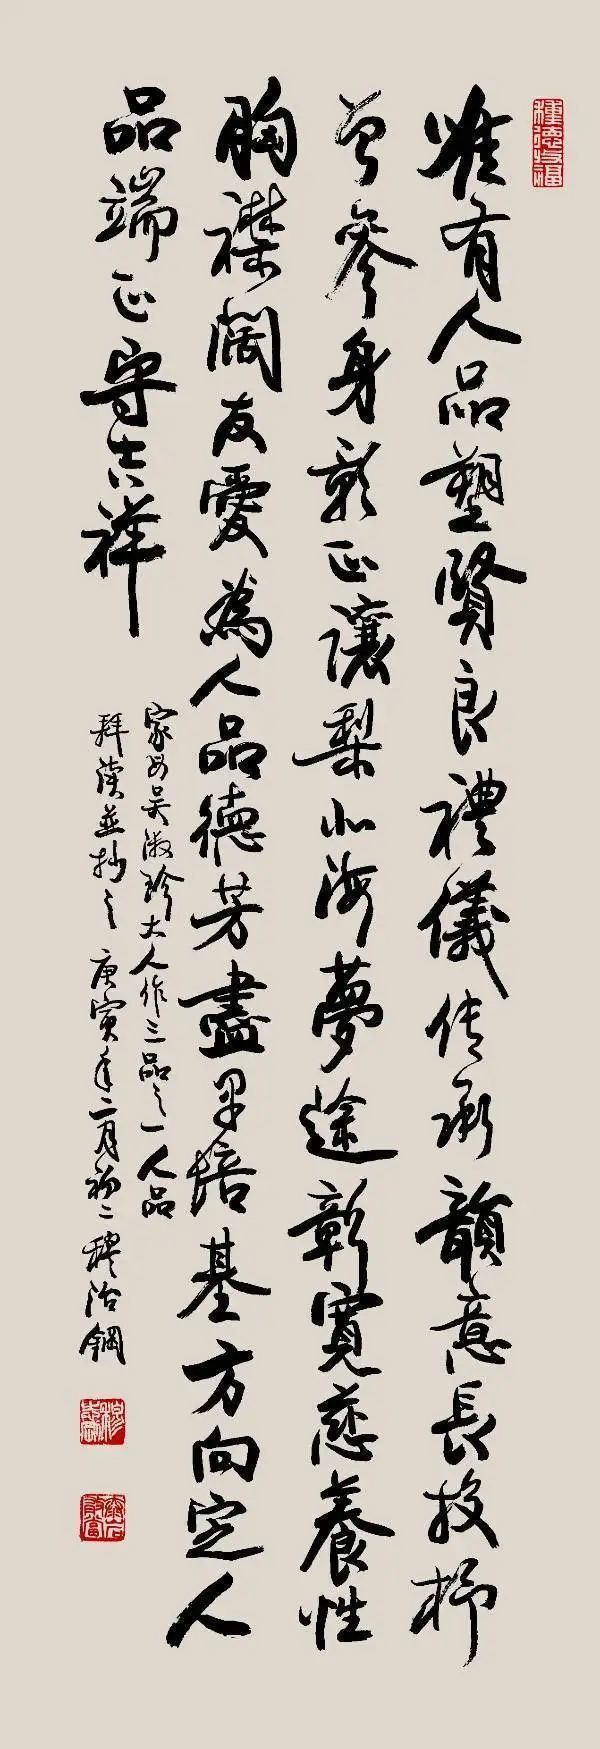 唯有人品塑賢良禮儀传承韻意長投杼
曾參身影正讓梨北海夢途彰寬慈養性
胸襟阔友愛為人品德芳盡早培基方向定人
品端正守吉祥
家母吴淑珍大人作三品之一人品
拜读並抄之 庚寅年二月初二 穆治鋼